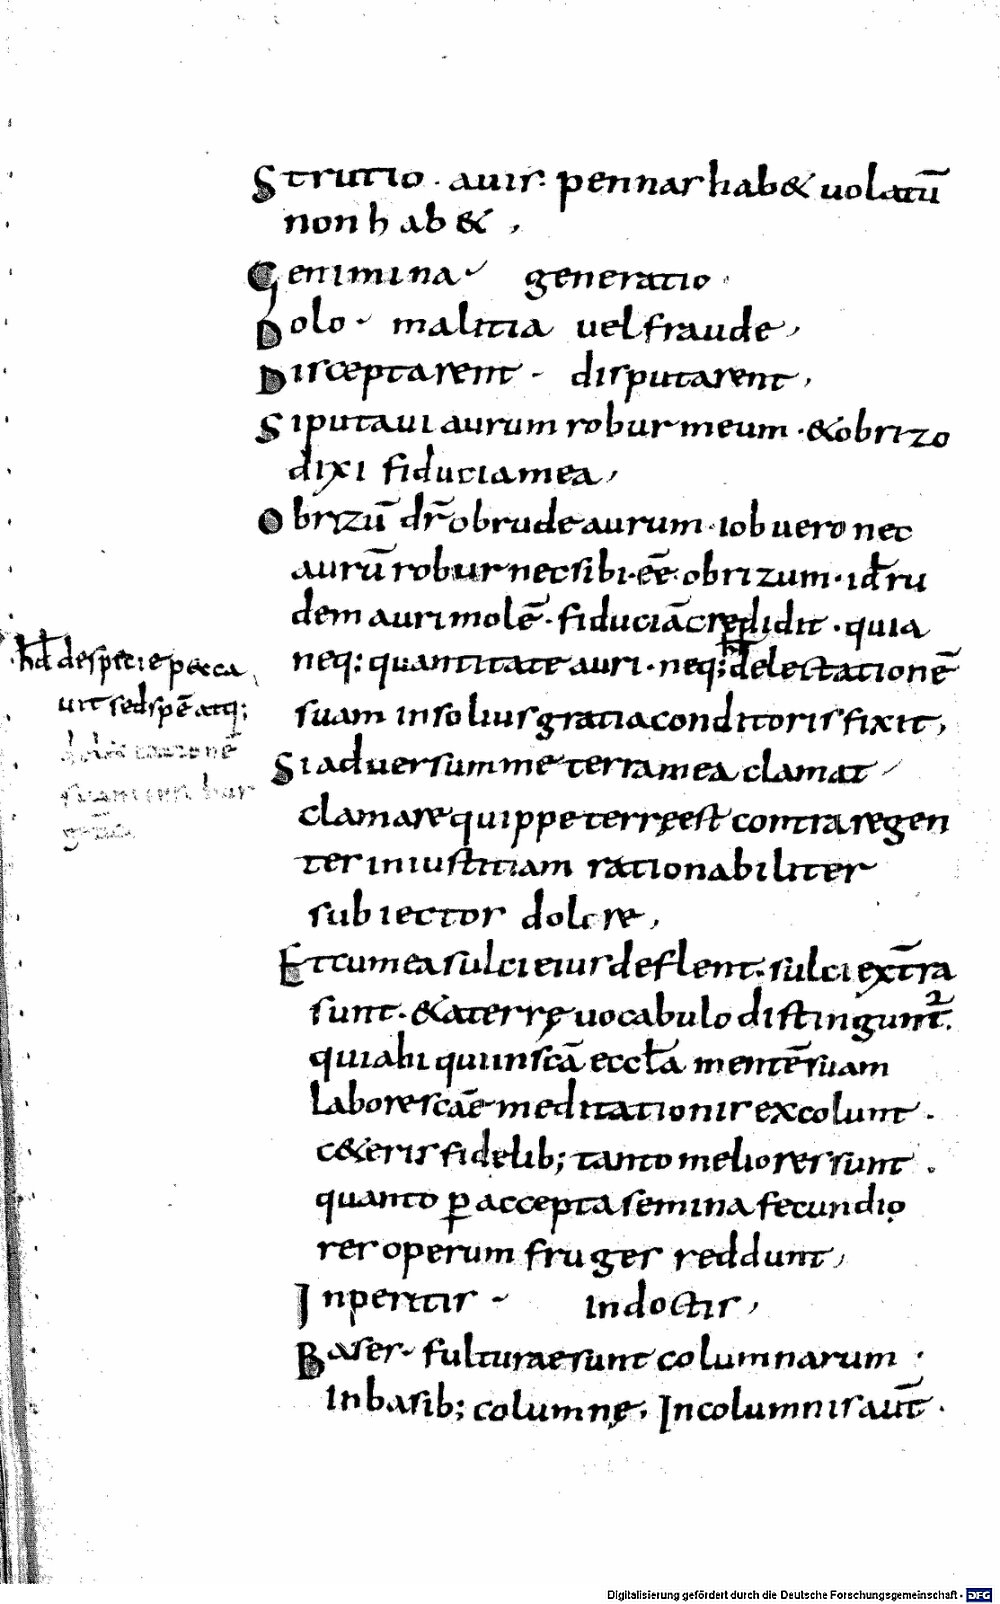 Strutio · auis · pennas hab& uolatū
non hab& ,
Genimina · generatio ·
Dolo · malitia uel fraude ,
Disceptarent · disputarent ,
Si putaui aurum robur meum · &obrizo
dixi fiducia mea ,
Obrizū dr̄ obrude aurum · iob uero nec
aurū robur nec sibi · eē · obrizum · id ru
dem auri molē · fiduciā credidit · quia
neq; quantitate auri · neq; delectationē
suam in solius gratia conditoris fixit ,
hd de specie pecca
uit sed spē atq;
Si aduersum me terra mea clamat
clamare quippe terrę est contra regen
ter iniustitiam rationabiliter
subiector dolere ,
Et cum ea sulci eius deflent · sulci extra
sunt · &a terrę uocabulo distingunt ·
quia hi qui in scā eccła mentē suam
labore scāe meditationis excolunt ·
c&eris fidelib; tanto meliores sunt ·
quanto p accepta semina fecundio
res operum fruges reddunt ,
Inperitis · Indoctis ,
Bases · fulturae sunt columnarum ·
In basib; columnę , In columnis aut̄ ·
Digitalisierung gefördert durch die Deutsche Forschungsgemeinschaft - DFG